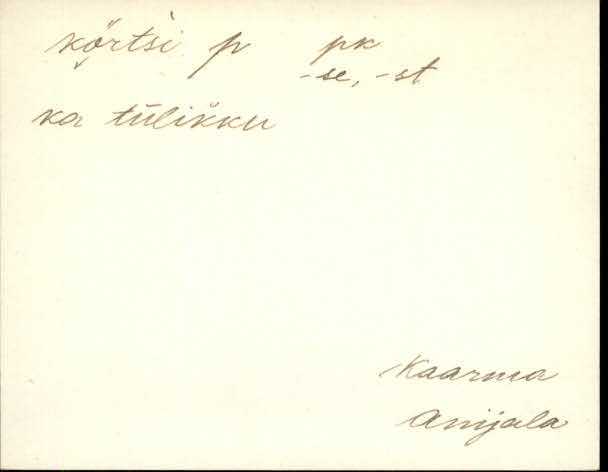 körtsi p pk
-se, -st
ka tülikku
Kaarma
Anijala